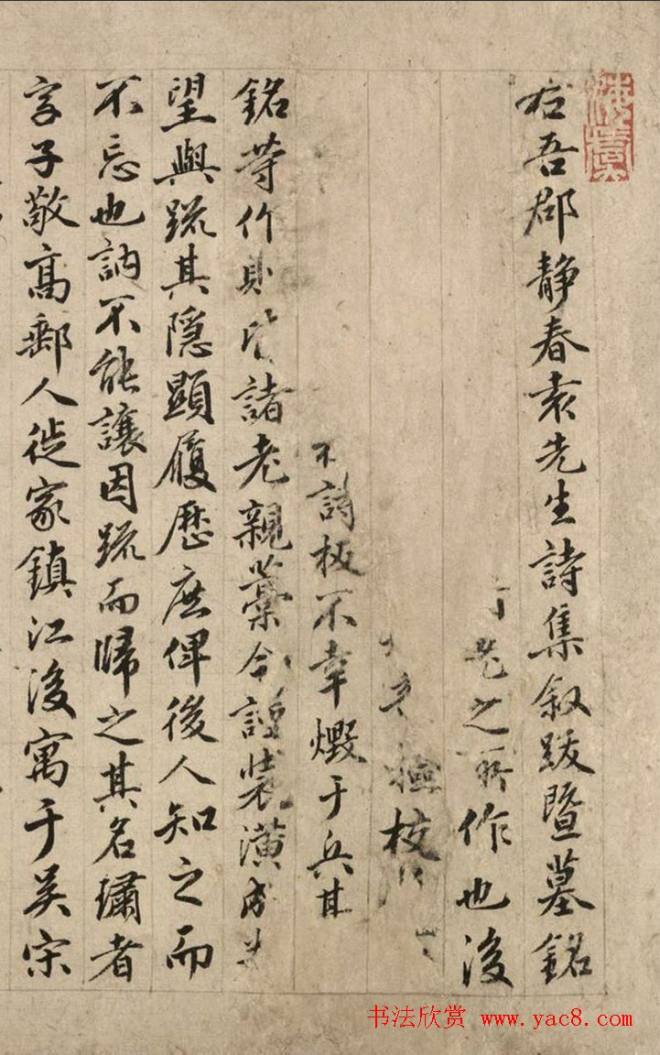 右吾郡静春袁先生詩集叙跋暨墓銘
老之所作也後
檢校
不詩板不幸燬于兵其
銘等作則皆諸老親藁今謹裝潢成
望與疏其隱顯履歷庶俾後人知之而
不忘也訥不能讓因疏而歸之其名璛者
字子敬高郵人徙家鎮江後寓于吴宋
书法欣赏 www.yac8.com